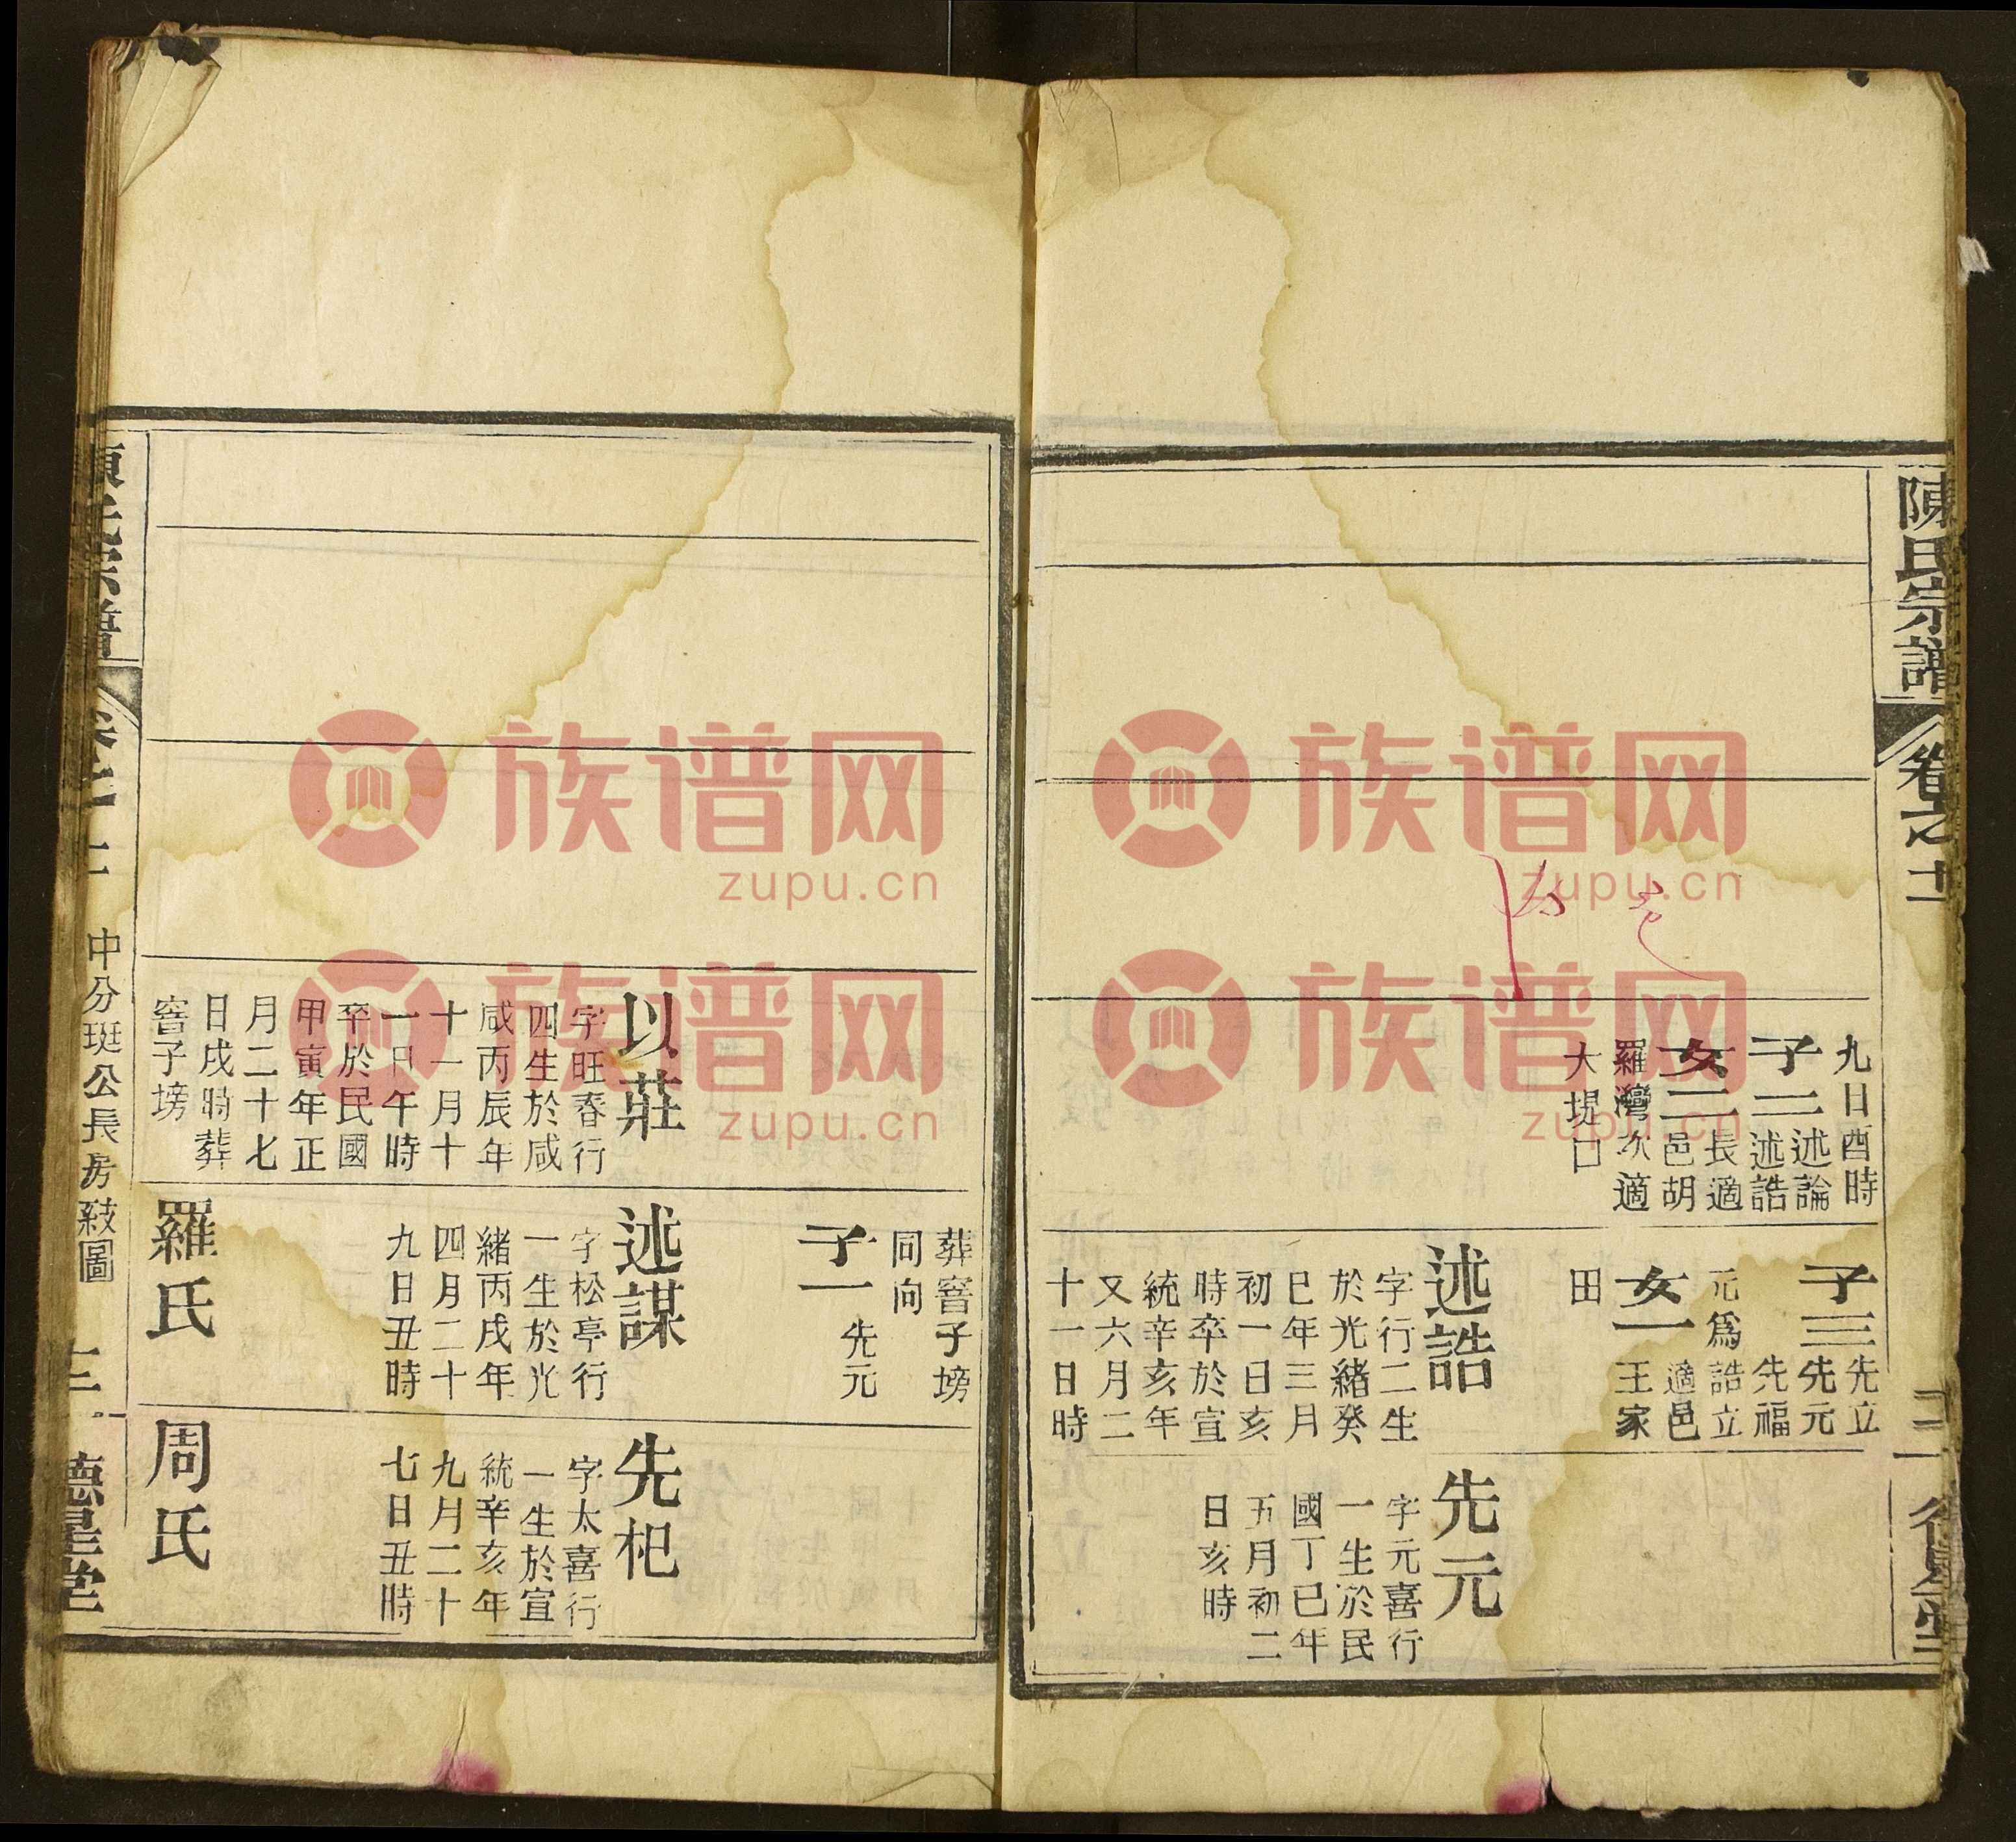 陳氏宗譜
卷之十二
九日酉時
子二述論
述誥
女二長適
邑胡
羅灣次適
大堤口
子三先立
先元
先福
元爲誥立
女一適邑
王家
田
述誥
字行二生
於光緒癸
巳年三月
初一日亥
時卒於宣
統辛亥年
又六月二
十一日時
先元
字元喜行
一生於民
國丁巳年
五月初二
日亥時
族谱网
zupu.cn
族谱网
zupu.cn
以莊
字旺春行
四生於咸
咸丙辰年
十一月十
一日午時
卒於民國
甲寅年正
月二十七
日戌時葬
窨子塝
葬窨子塝
同向
子一先元
述謀
字松亭行
一生於光
緒丙戌年
四月二十
九日丑時
羅氏
先杞
字太喜行
一生於宣
統辛亥年
九月二十
七日丑時
周氏
中分珽公長房紋圖
德星堂
族谱网
zupu.cn
族谱网
zupu.cn